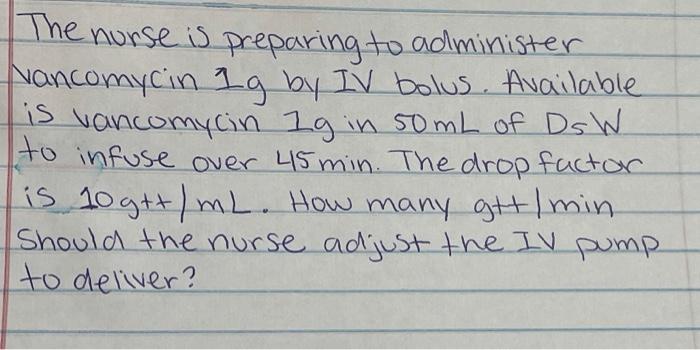 The nurse is preparing to administer
vancomycin 1g by IV bolus. Available
is vancomycin 1g in 50mL of D5W
to infuse over 45min. The drop factor
is 10gtt/mL. How many gtt/min
Should the nurse adjust the IV pump
to deliver?